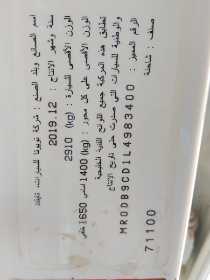 اسم الصانع وبلد الصنع : شركة تويوتا للسيارات، تايلند
سنة وشهر الانتاج : 2019.12
الوزن الأقصى للسيارة : (kg) 2910
الوزن الأقصى على كل محور : (kg) 1400 امامي 1650 خلفي
تطابق هذه المركبة جميع اللوائح الفنية الخليجية
والوطنية للسيارات التي صدرت حتى تاريخ الانتاج
الرقم المميز : MR0DB9CD1L4983400
صنف : شاحنة
71100